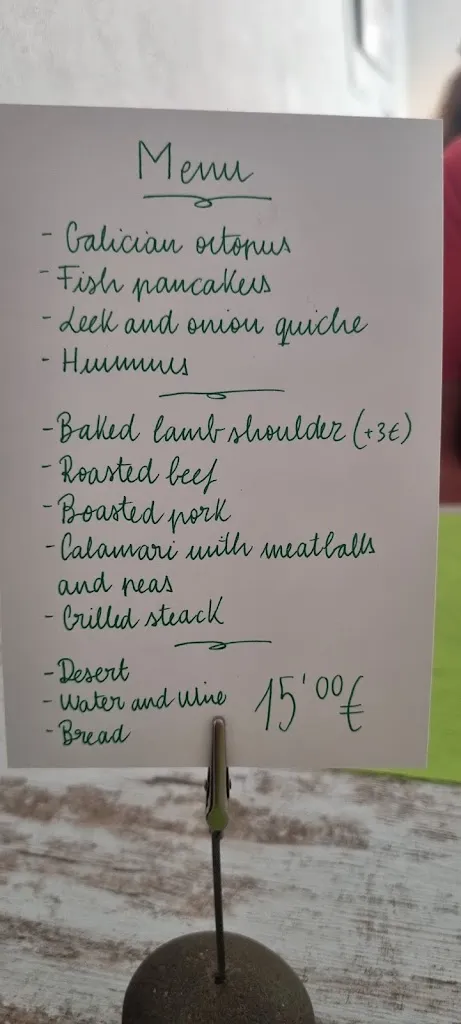 Menu
- Galician octopus
- Fish pancakes
- Leek and onion quiche
- Hummus
- Baked lamb shoulder (+3€)
- Roasted beef
- Boasted pork
- Calamari with meatballs
and peas
- Grilled steack
- Desert
- Water and Wine 15'00€
- Bread